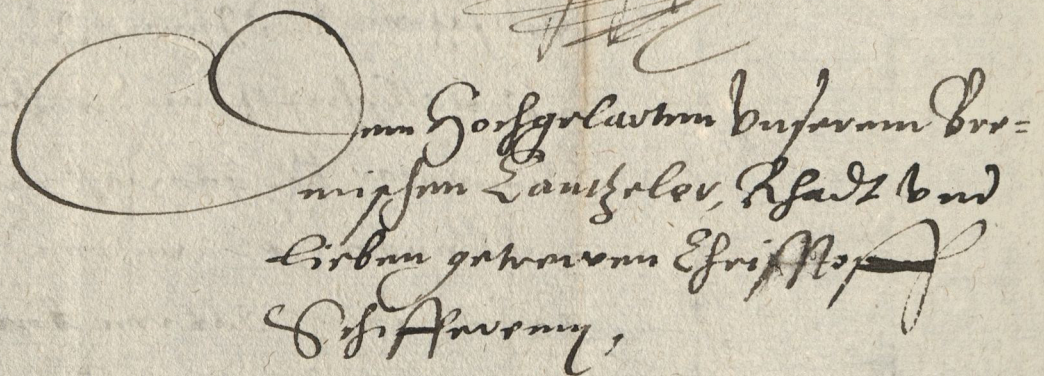 Dem Hochgelarten Vnserem Bre=
mischen Cantzeler, Rhadt Vnd
lieben getrewen Christoff
Schifferem,